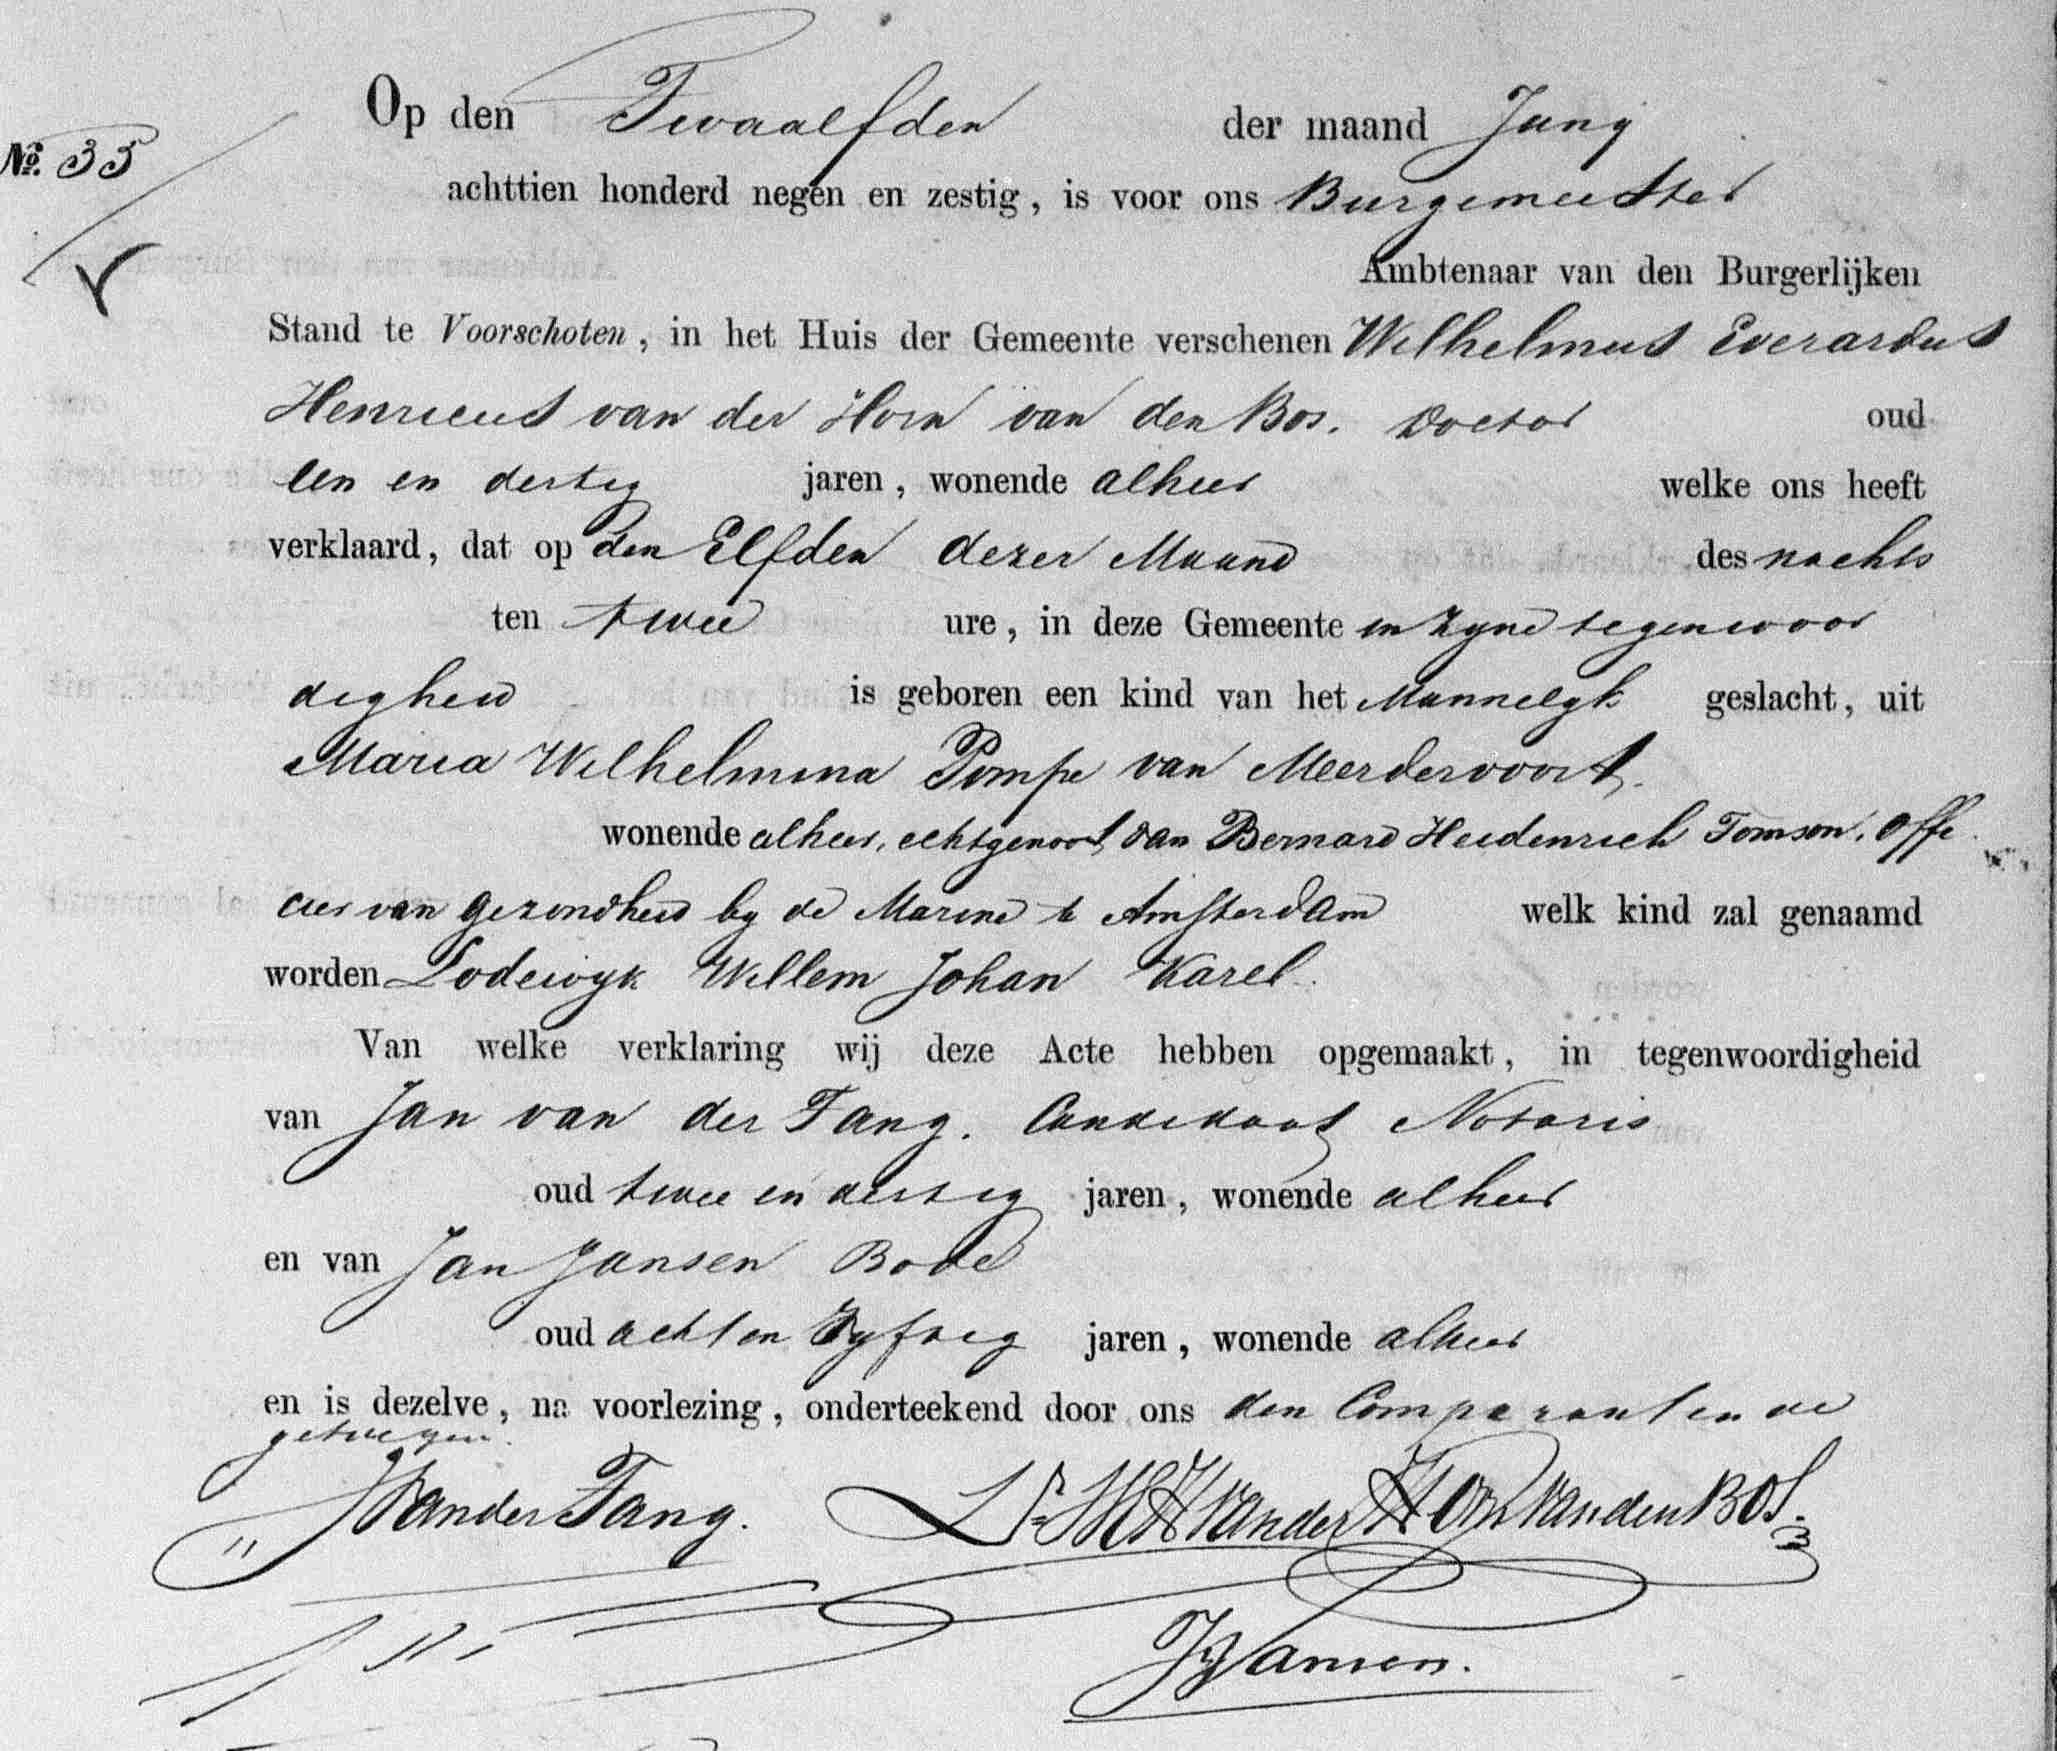 Op den Twaalfden der maand Juny
No. 35
achttien honderd negen en zestig, is voor ons Burgemeester
Ambtenaar van den Burgerlijken
Stand te Voorschoten, in het Huis der Gemeente verschenen Wilhelmus Everardus
Henricus van der Horn van den Bos. Doctor oud
een en dertig jaren, wonende alhier welke ons heeft
verklaard, dat op den Elfden dezer Maand des nachts
ten twee ure, in deze Gemeente in zyne tegenwoor
digheid is geboren een kind van het Mannelyk geslacht, uit
Maria Wilhelmina Pompe van Meerdervoort.
wonende alhier, echtgenoot van Bernard Heidenrich Tomson, Offi
cier van gezondheid by de Marine te Amsterdam welk kind zal genaamd
worden Lodewyk Willem Johan Karel.
Van welke verklaring wij deze Acte hebben opgemaakt, in tegenwoordigheid
van Jan van der Tang. Candidaat Notaris
oud twee en dertig jaren, wonende alhier
en van Jan Jansen Bode
oud acht en Vyftig jaren, wonende alhier
en is dezelve, na voorlezing, onderteekend door ons den Comparant en de
getuigen.
JVander Tang. Dr. WEH van der Horn van den Bos.
JJansen.